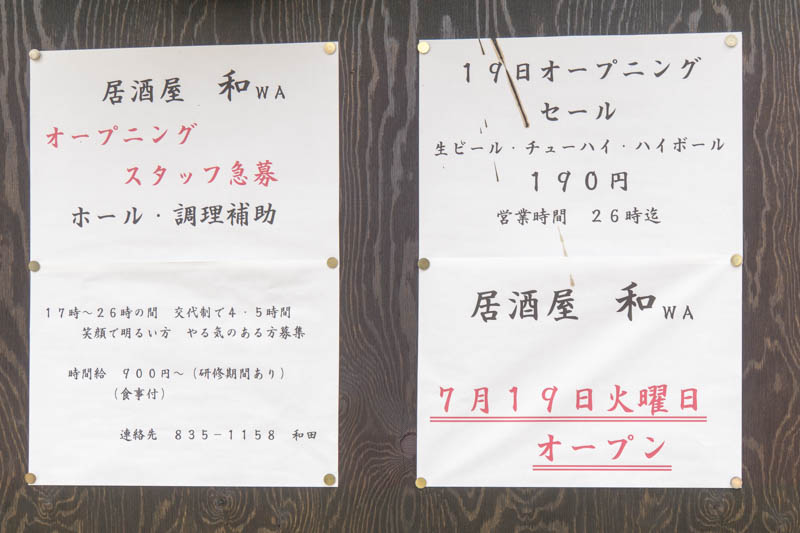 居酒屋 和WA
オープニング
スタッフ急募
ホール・調理補助
17時～26時の間 交代制で4・5時間
笑顔で明るい方 やる気のある方募集
時間給 900円～（研修期間あり）
（食事付）
連絡先 835－1158 和田
19日オープニング
セール
生ビール・チューハイ・ハイボール
190円
営業時間 26時迄
居酒屋 和WA
7月19日火曜日
オープン